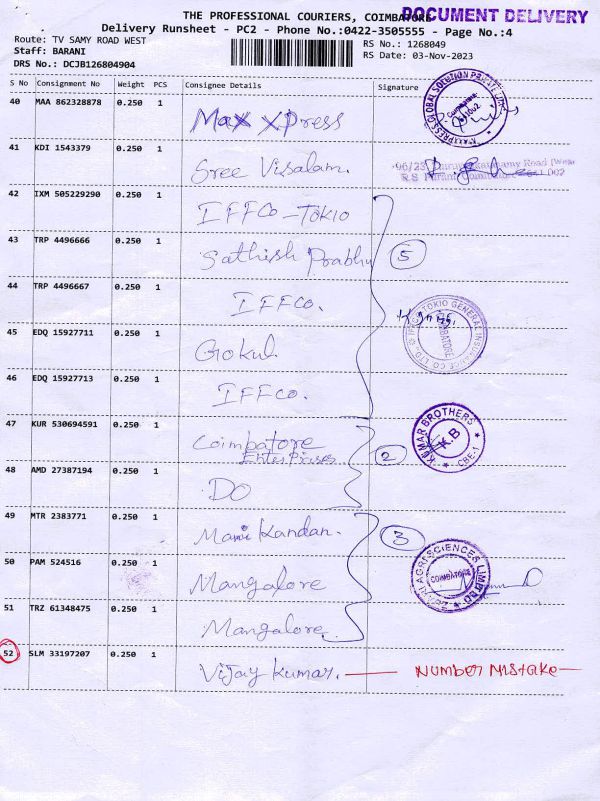 THE PROFESSIONAL COURIERS, COIMBATORE
DOCUMENT DELIVERY
Delivery Runsheet - PC2 - Phone No.:0422-3505555 - Page No.:4
Route: TV SAMY ROAD WEST
RS No.: 1268049
Staff: BARANI
RS Date: 03-Nov-2023
DRS No.: DCJB126804904
S No Consignment No Weight PCS Consignee Details Signature
40 MAA 862328878 0.250 1 Max xpress
41 KDI 1543379 0.250 1 Sree Visalam.
42 IXM 505229290 0.250 1 IFFCo - Tokio
43 TRP 4496666 0.250 1 Sathish Prabhu 5
44 TRP 4496667 0.250 1 IFFCo.
45 EDQ 15927711 0.250 1 Gokul.
46 EDQ 15927713 0.250 1 IFFCo.
47 KUR 530694591 0.250 1 Coimbatore
Enterprises 2
KUMAR BROTHERS
K.B
CBE-1
48 AMD 27387194 0.250 1 DO
49 MTR 2383771 0.250 1 Mani Kandan. 3
50 PAM 524516 0.250 1 Mangalore
AGRISCIENCES LIMITED
COIMBATORE
51 TRZ 61348475 0.250 1 Mangalore
52 SLM 33197207 0.250 1 Vijay Kumar. — Number Mistake —